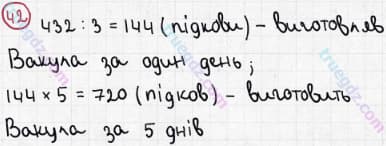 42 432 : 3 = 144 (підкови) – виготовляв
Вакула за один день;
144 × 5 = 720 (підков) – виготовить
Вакула за 5 днів